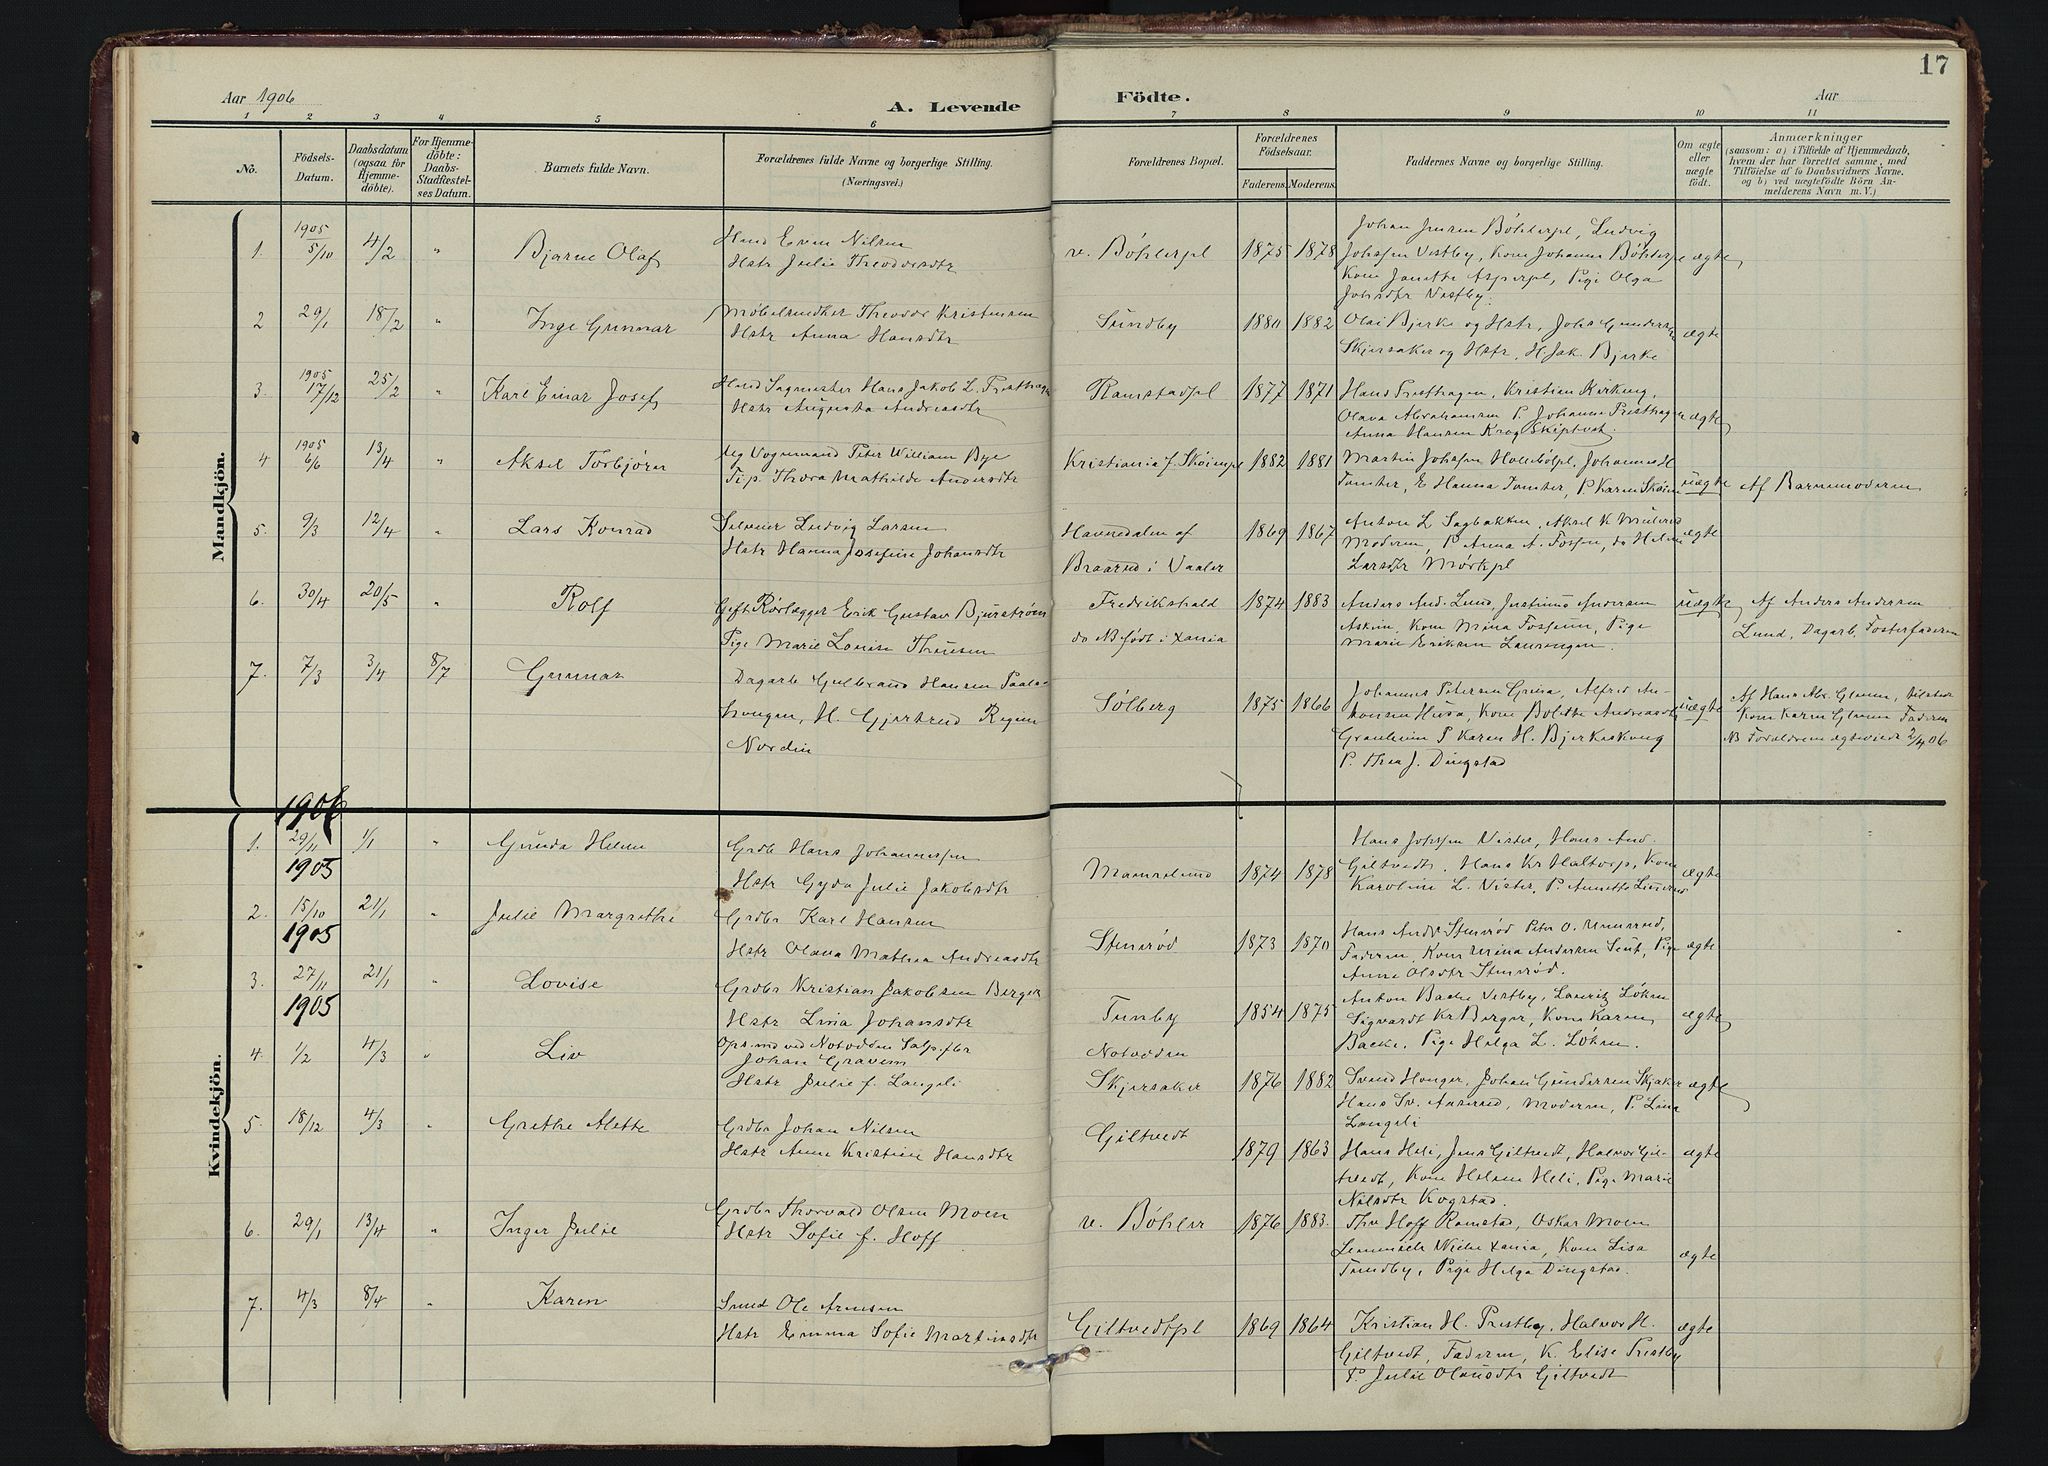 17
Aar 1906
A. Levende Födte.
Aar
1 2 3 4 5 6 7 8 9 10 11
No.
Födsels-Datum.
Daabsdatum (ogsaa for Hjemmedöbte).
For Hjemmedöbte: Daabs-Stadfæstelses Datum.
Barnets fulde Navn.
Forældrenes fulde Navne og borgerlige Stilling.
(Næringsvei.)
Forældrenes Bopæl.
Forældrenes Födselsaar.
Faderens. Moderens.
Faddernes Navne og borgerlige Stilling.
Om ægte eller uægte födt.
Anmærkninger
(saasom: a) i Tilfælde af Hjemmedaab,
hvem der har forrettet samme, med
Tilföielse af to Daabsvidners Navne.
og b) ved uægtefödte Börn Anmelderens Navn m. V.)
Mandkjön.
1. 1905 5/10 4/2 " Bjarne Olaf
Hmd Even Nilsen
Hstr Julie Theodorsdtr
v. Bøhlerpl 1875 1878
Johan Jensen Bøhlerpl, Ludvig
Johssen Vestby, Kone Johanne Bøhlerpl
Kone Janette Asperpl, Pige Olga
Johsdtr Vestby.
ægte
2 29/1 18/2 " Inge Gunnar
Møbelsnedker Theodor Kristensen
Hstr Anna Hansdtr
Sundby 1880 1882
Olai Bjerke og Hstr, Johs Gundersen
Skjersaker og Hstr, H. Jak. Bjerke
ægte
3. 1905 17/12 25/2 " Karl Einar Josef
Hmd Sagmester Hans Jakob L. Presthagen
Hstr Augusta Andreasdtr
Ramstadpl 1877 1871
Hans Presthagen, Kristian Kirkeng,
Olava Abrahamsen P. Johanne Presthagen
Anna Hansen Krog Skiptvet.
ægte
4 1905 6/6 13/4 " Aksel Torbjørn
Ug Vognmand Peter William Bye
Pip. Thora Mathilde Andersdtr
Kristiania f. Skøienpl 1882 1881
Martin Johssen Hallebølpl, Johannes H
Tomter, E Hanna Tomter, P. Karen Skøien
uægte Af Barnemoderen
5. 9/3 12/4 " Lars Konrad
Selveier Ludvig Larsen
Hstr Hanna Josefine Johansdtr
Havnedalen af
Braarud i Vaaler
1869 1867
Anton L Sagbakken, Aksel K Mulerud
Moderen, P. Anna A. Fossen, do Helene
Larsdtr Mørkpl
ægte
6. 30/4 20/5 " Rolf
Gift Rørlægger Erik Gustav Bjurstrøm
Pige Marie Lovise Thuesen
Fredrikshald
do N født i Xania
1874 1883
Anders And. Lund, Justinus Andersen
Askim, Kone Mina Fossum, Pige
Marie Eriksen Laurengen.
uægte
Af Anders Andersen
Lund, Dagarb, Fosterfaderen
7. 7/3 3/4 8/7 Gunnar
Dagarb Gulbrand Hansen Paals-
hougen, H. Gjertrud Regine
Nordin
Solberg 1875 1866
Johannes Petersen Grina, Alfred An-
tonsen Husa, Kone Bolette Andreasdtr
Granheim P Karen H. Bjerkeskoug
P. Thea J. Dingstad
uægte
Af Hans Alr. Glenne, tilstede
Kone Karen Glenne Faderen
NB Forældrene ægteviede 2/4 06
1906
Kvindekjön.
1. 29/11 1905 1/1 " Gunda Helene
Grdb Hans Johannessen
Hstr Gyda Julie Jakobsdtr
Mamrelund 1874 1878
Hans Johssen Vister, Hans And.
Giltvedt, Hans Kr Haltorp, Kone
Karoline L. Vister, P. Annette Linnerud
ægte
2. 15/10 1905 21/1 " Julie Margrethe
Grdbr Karl Hansen
Hstr Olava Mathea Andreasdtr
Stenrød 1873 1870
Hans Ands Stenrød Peter O. Unnerud,
Faderen, Kone Mina Andersen Sent, Pige
Anne Olsdtr Stenrød.
ægte
3. 27/11 1905 21/1 " Lovise
Grdbr Kristian Jakobsen Berger
Hstr Lina Johansdtr
Tunby 1854 1875
Anton Bache Vestby, Lauritz Løken
Sigvardt Kr Berger, Kone Karen
Backe, Pige Helga L. Løken.
ægte
4. 1/2 4/3 " Liv
Ops.md ved Notodden Salp.fbr
Johan Gravem
Hstr Julie f. Langeli
Notodden
Skjersaker
1876 1882
Svend Honger, Johan Gundersen Skjaker
Hans Sv. Auserud, Moderen, P. Lina
Langeli
ægte
5. 18/12 4/3 " Grethe Alette
Grdbr Johan Nilsen
Hstr Anne Kristine Hansdtr
Giltvedt
1879 1863
Hans Heli, Jens Giltvedt, Halvor Gil-
tvedt, Kone Helene Heli, Pige Marie
Nilsdtr Kogstad.
ægte
6. 29/1 13/4 " Inger Julie
Grdbr Thorvald Olsen Moen
Hstr Sofie f. Hoff
v. Bøhler 1876 1883.
Thv Hoff Ramstad, Oskar Moen
Xania, Kone Lisa
Sundby, Pige Helga Dingstad.
ægte
7. 4/3 8/4 " Karen
Smed Ole Arnesen
Hstr Emma Sofie Martinsdtr
Giltvedtpl 1869 1864
Kristian H. Prestby, Halvor H.
Giltvedt, Faderen, K. Elise Prestby
P. Julie Olausdtr Giltvedt
ægte